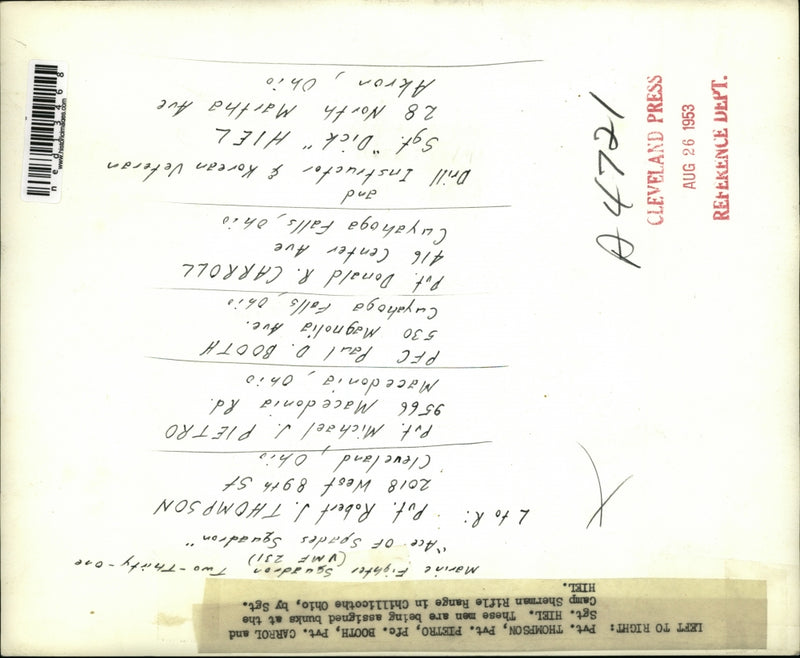 LEFT TO RIGHT: Pvt. THOMPSON, Pvt. PIETRO, Pfc. BOOTH, Pvt. CARROL and
Sgt. HIEL. These men are being assigned bunks at the
Camp Sherman Rifle Range in Chillicothe Ohio, by Sgt.
HIEL.
Marine Fighter Squadron Two-Thirty-One
(VMF 231)
"Ace OF Spades Squadron"
L to R: Pvt. Robert J. THOMPSON
2018 West 89th St
Cleveland, Ohio
Pvt. Michael J. PIETRO
9566 Macedonia Rd.
Macedonia, Ohio
PFC Paul D. BOOTH
530 Magnolia Ave.
Cuyahoga Falls, Ohio
Pvt. Donald R. CARROLL
416 Center Ave
Cuyahoga Falls, Ohio
and
Drill Instructor & Korean Veteran
Sgt. "Dick" HIEL
28 North Martha Ave
Akron, Ohio
A4721
CLEVELAND PRESS
AUG 26 1953
REFERENCE DEPT.